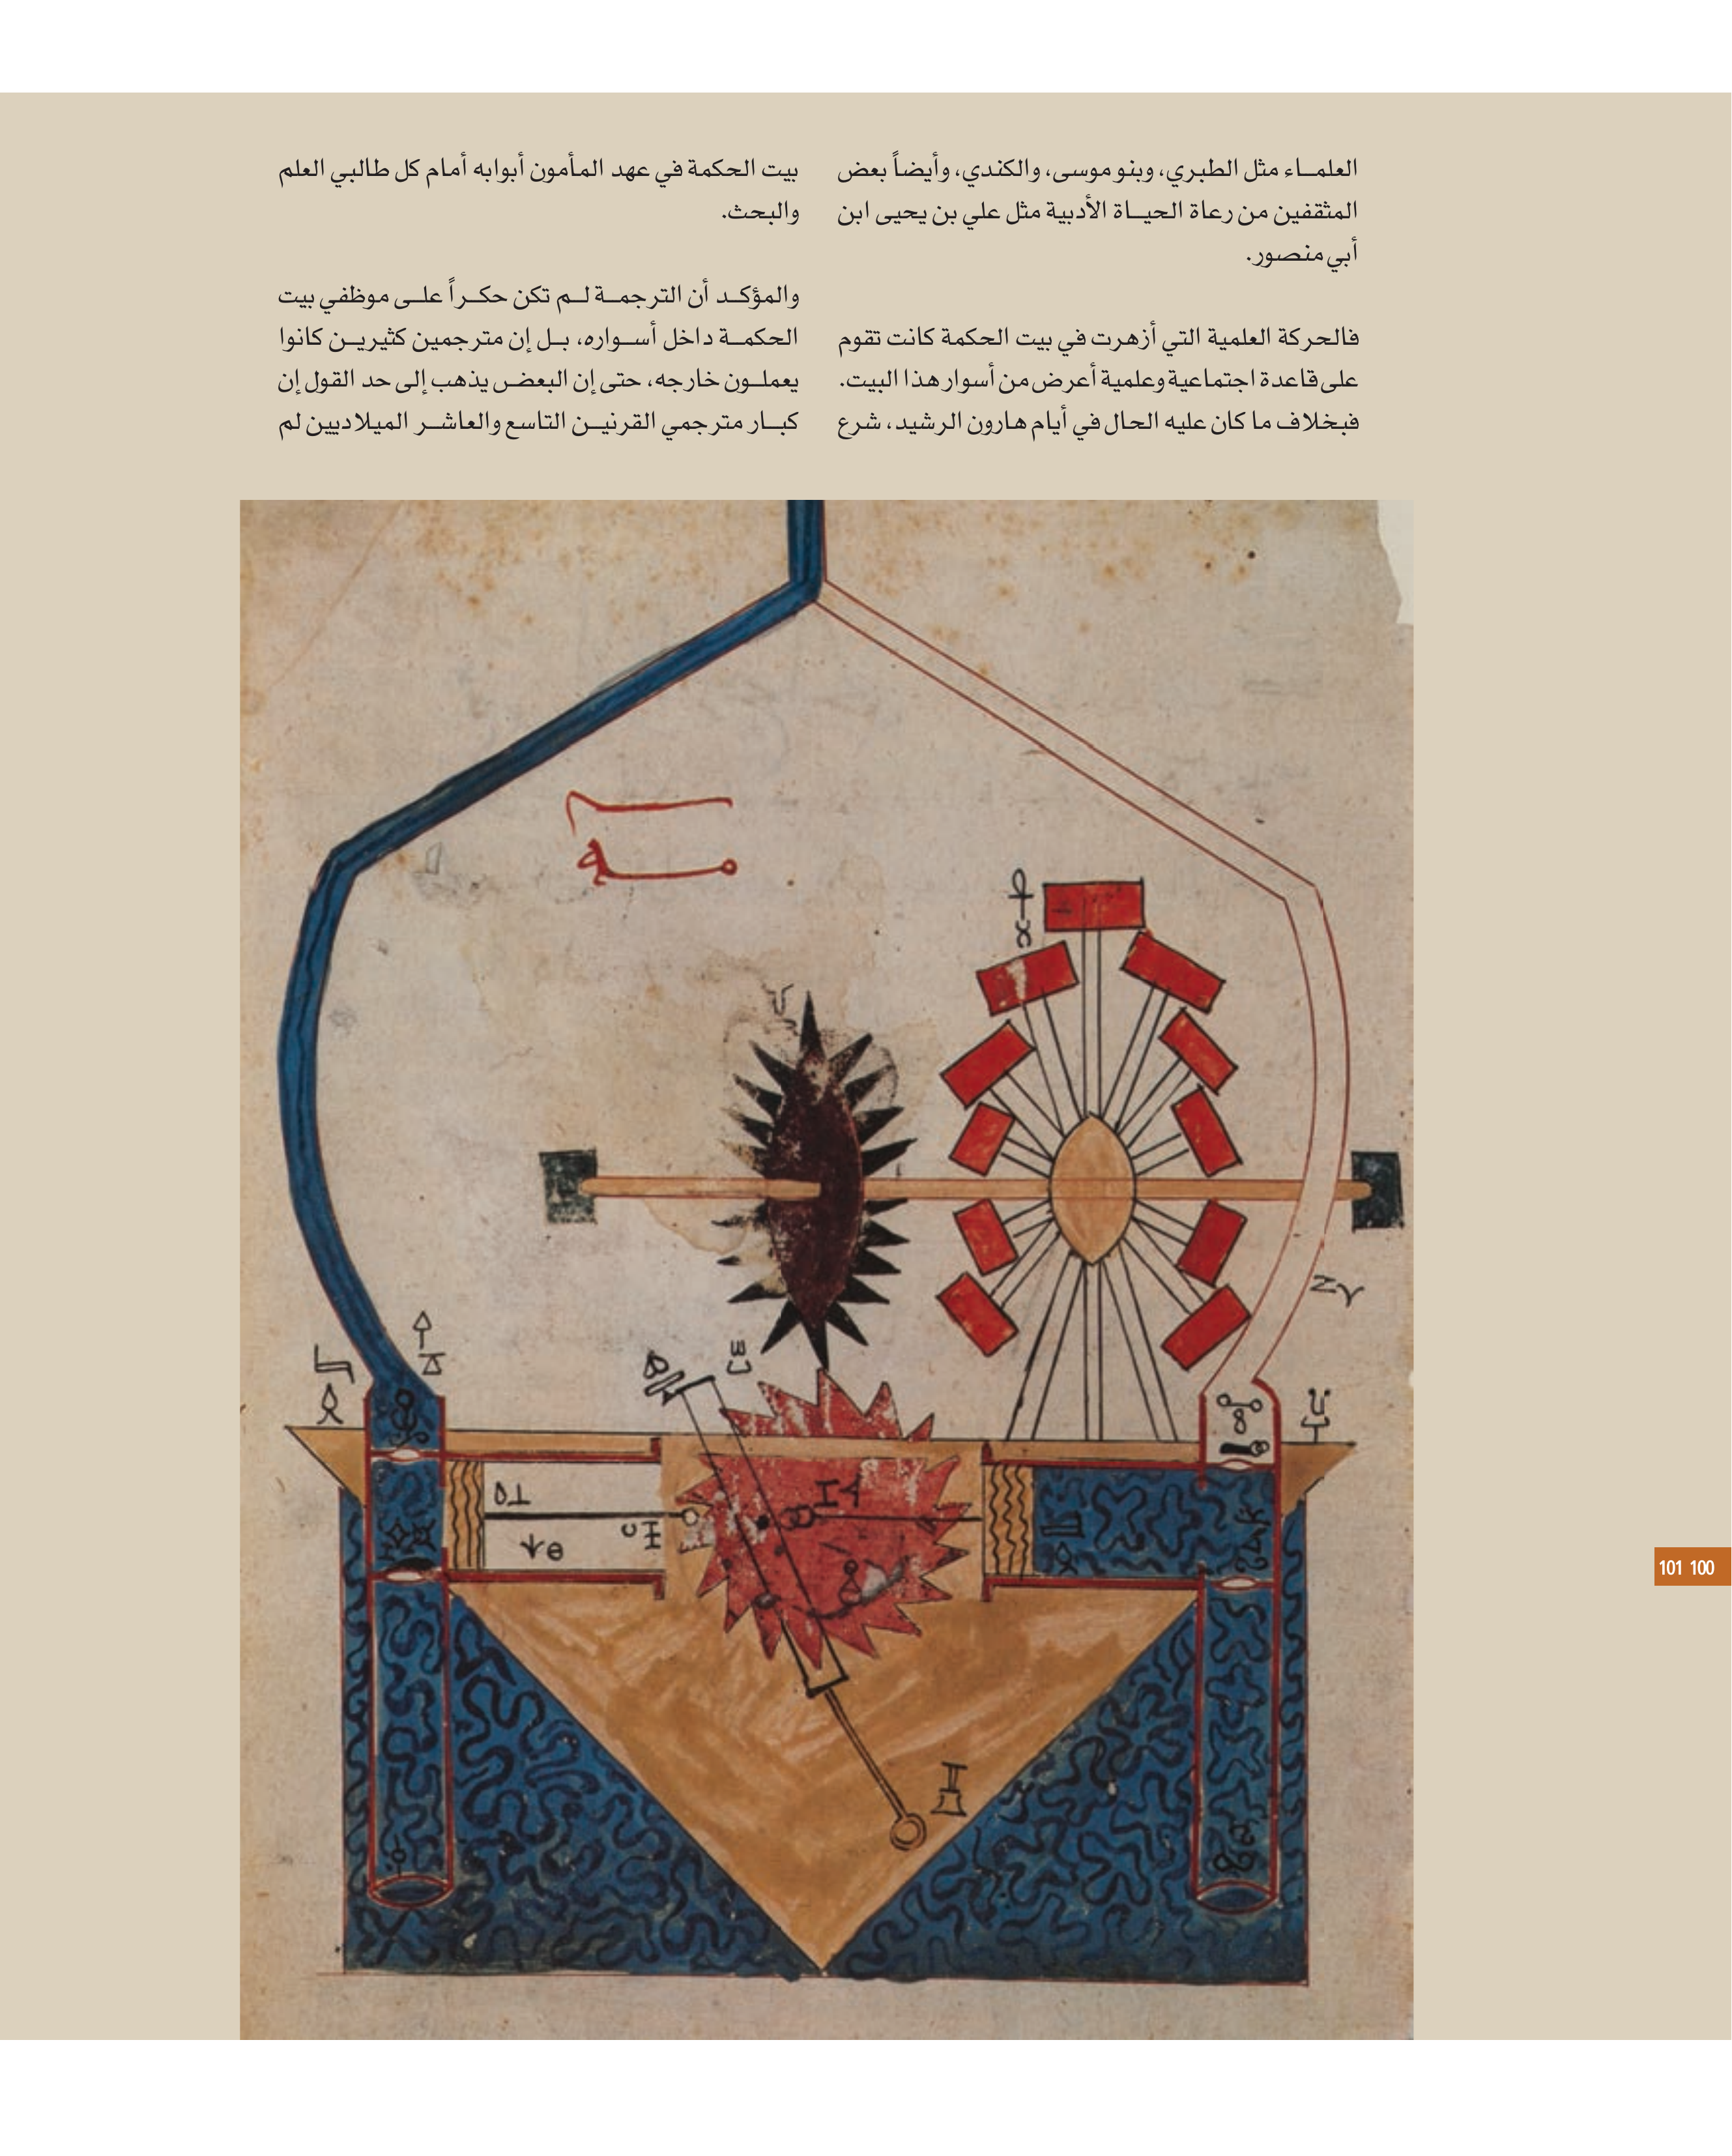 العلماء مثل الطبري، وبنو موسى، والكندي، وأيضاً بعض
المثقفين من رعاة الحياة الأدبية مثل علي بن يحيى ابن
أبي منصور.
فالحركة العلمية التي أزهرت في بيت الحكمة كانت تقوم
على قاعدة اجتماعية وعلمية أعرض من أسوار هذا البيت.
فبخلاف ما كان عليه الحال في أيام هارون الرشيد، شرع
بيت الحكمة في عهد المأمون أبوابه أمام كل طالبي العلم
والبحث.
والمؤكد أن الترجمة لم تكن حكراً على موظفي بيت
الحكمة داخل أسواره، بل إن مترجمين كثيرين كانوا
يعملون خارجه، حتى إن البعض يذهب إلى حد القول إن
كبار مترجمي القرنين التاسع والعاشر الميلاديين لم
101 100